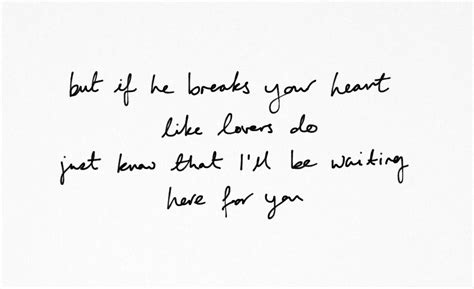 but if he breaks your heart
like lovers do
just know that I'll be waiting
here for you